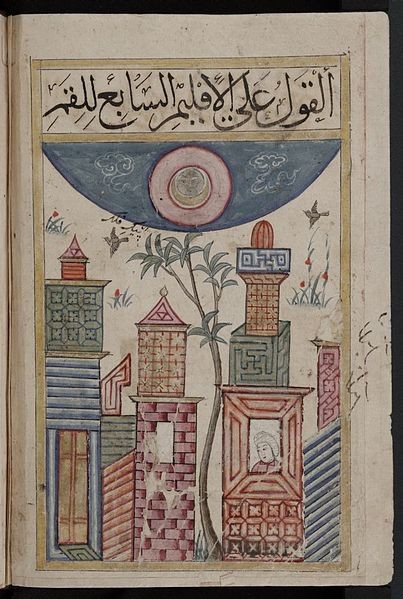 القول علي الاقليم السابع للقمر